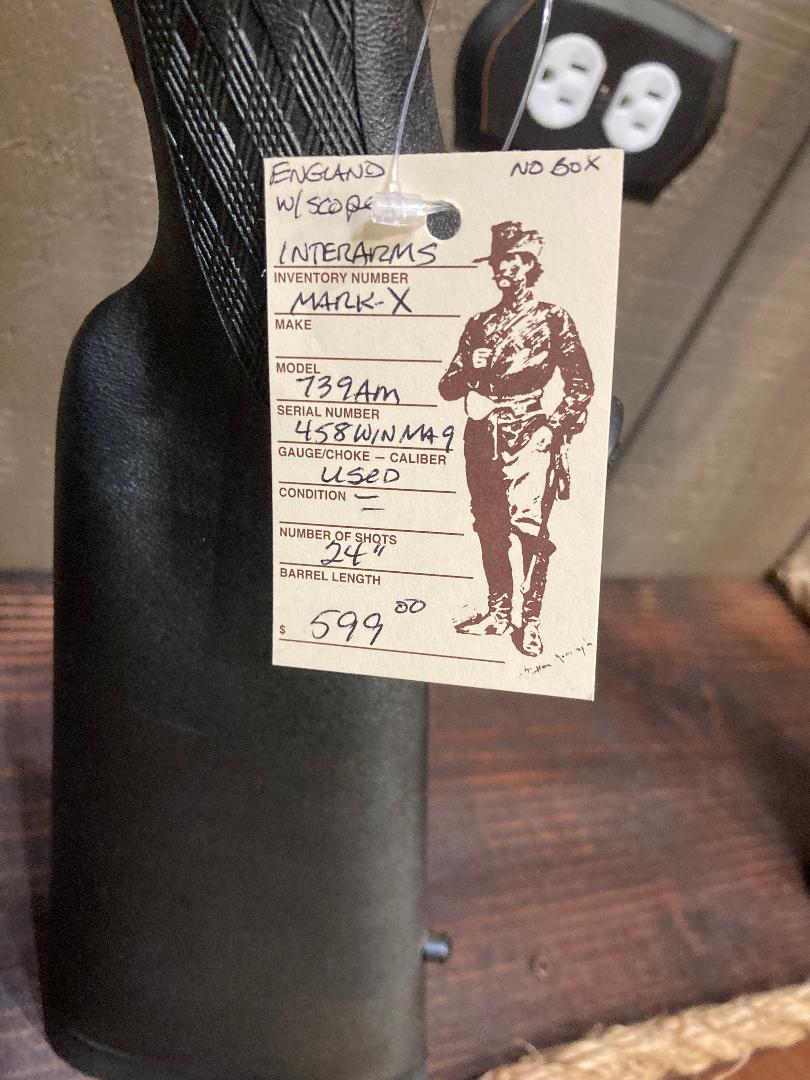 ENGLAND
NO BOX
W/ SCOPE
INTERARMS
INVENTORY NUMBER
MARK-X
MAKE
MODEL
739AM
SERIAL NUMBER
458 WIN MAG
GAUGE/CHOKE – CALIBER
USED
CONDITION –
NUMBER OF SHOTS
24"
BARREL LENGTH
$ 599 00